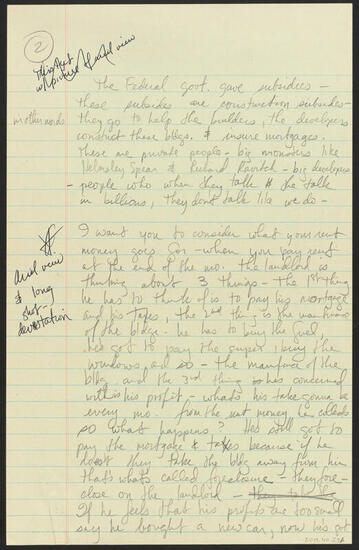 2
this part
w/ picture of aerial view
The Federal govt. gave subsidies -
these subsides are construction subsides -
in other words they go to help the builders, the developers
construct these bldgs. & insure mortgages.
These are private people - big monsters like
Helmsley Spear & Richard Ravitch - big developers
- people who when they talk $ she talk
in billions, They don't talk like we do -
I want you to consider what your rent
money goes for - when you pay rent
at the end of the mo. the landlord is
thinking about 3 things - the 1st thing
he has to think of is to pay his mortgage
and his taxes, the 2nd thing is the maintinance
of the bldge. he has to buy the fuel
he's got to pay the super, buy the
windows, and so - the maintinance of the
bldg. and the 3rd thing is he's concerned
with is his profit - what's his take gonna be
every mo. from the rent money he collects
so what happens? He still got to
pay the mortgate & taxes because if he
doesn't they take the bldg away from him
that's what's called foreclosure - they fore-
close on the landlord -
If he feels that his profits are too small
say he bought a new car, now his got
ariel view
& long
shot
devastation